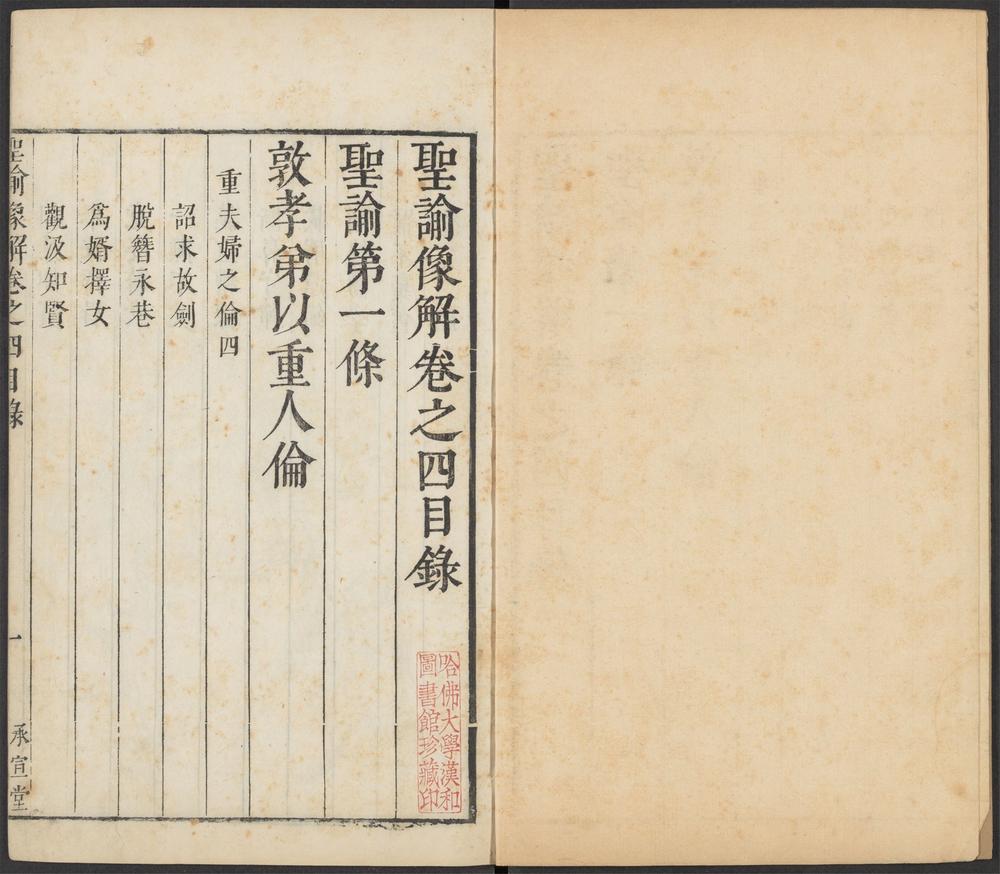 聖諭像解卷之四目錄
聖諭第一條
敦孝弟以重人倫
重夫婦之倫四
詔求故劍
脫簪永巷
爲婿擇女
觀汲知賢
聖諭像解卷之四目錄
一
承宣堂
哈佛大學漢和
圖書館珍藏印